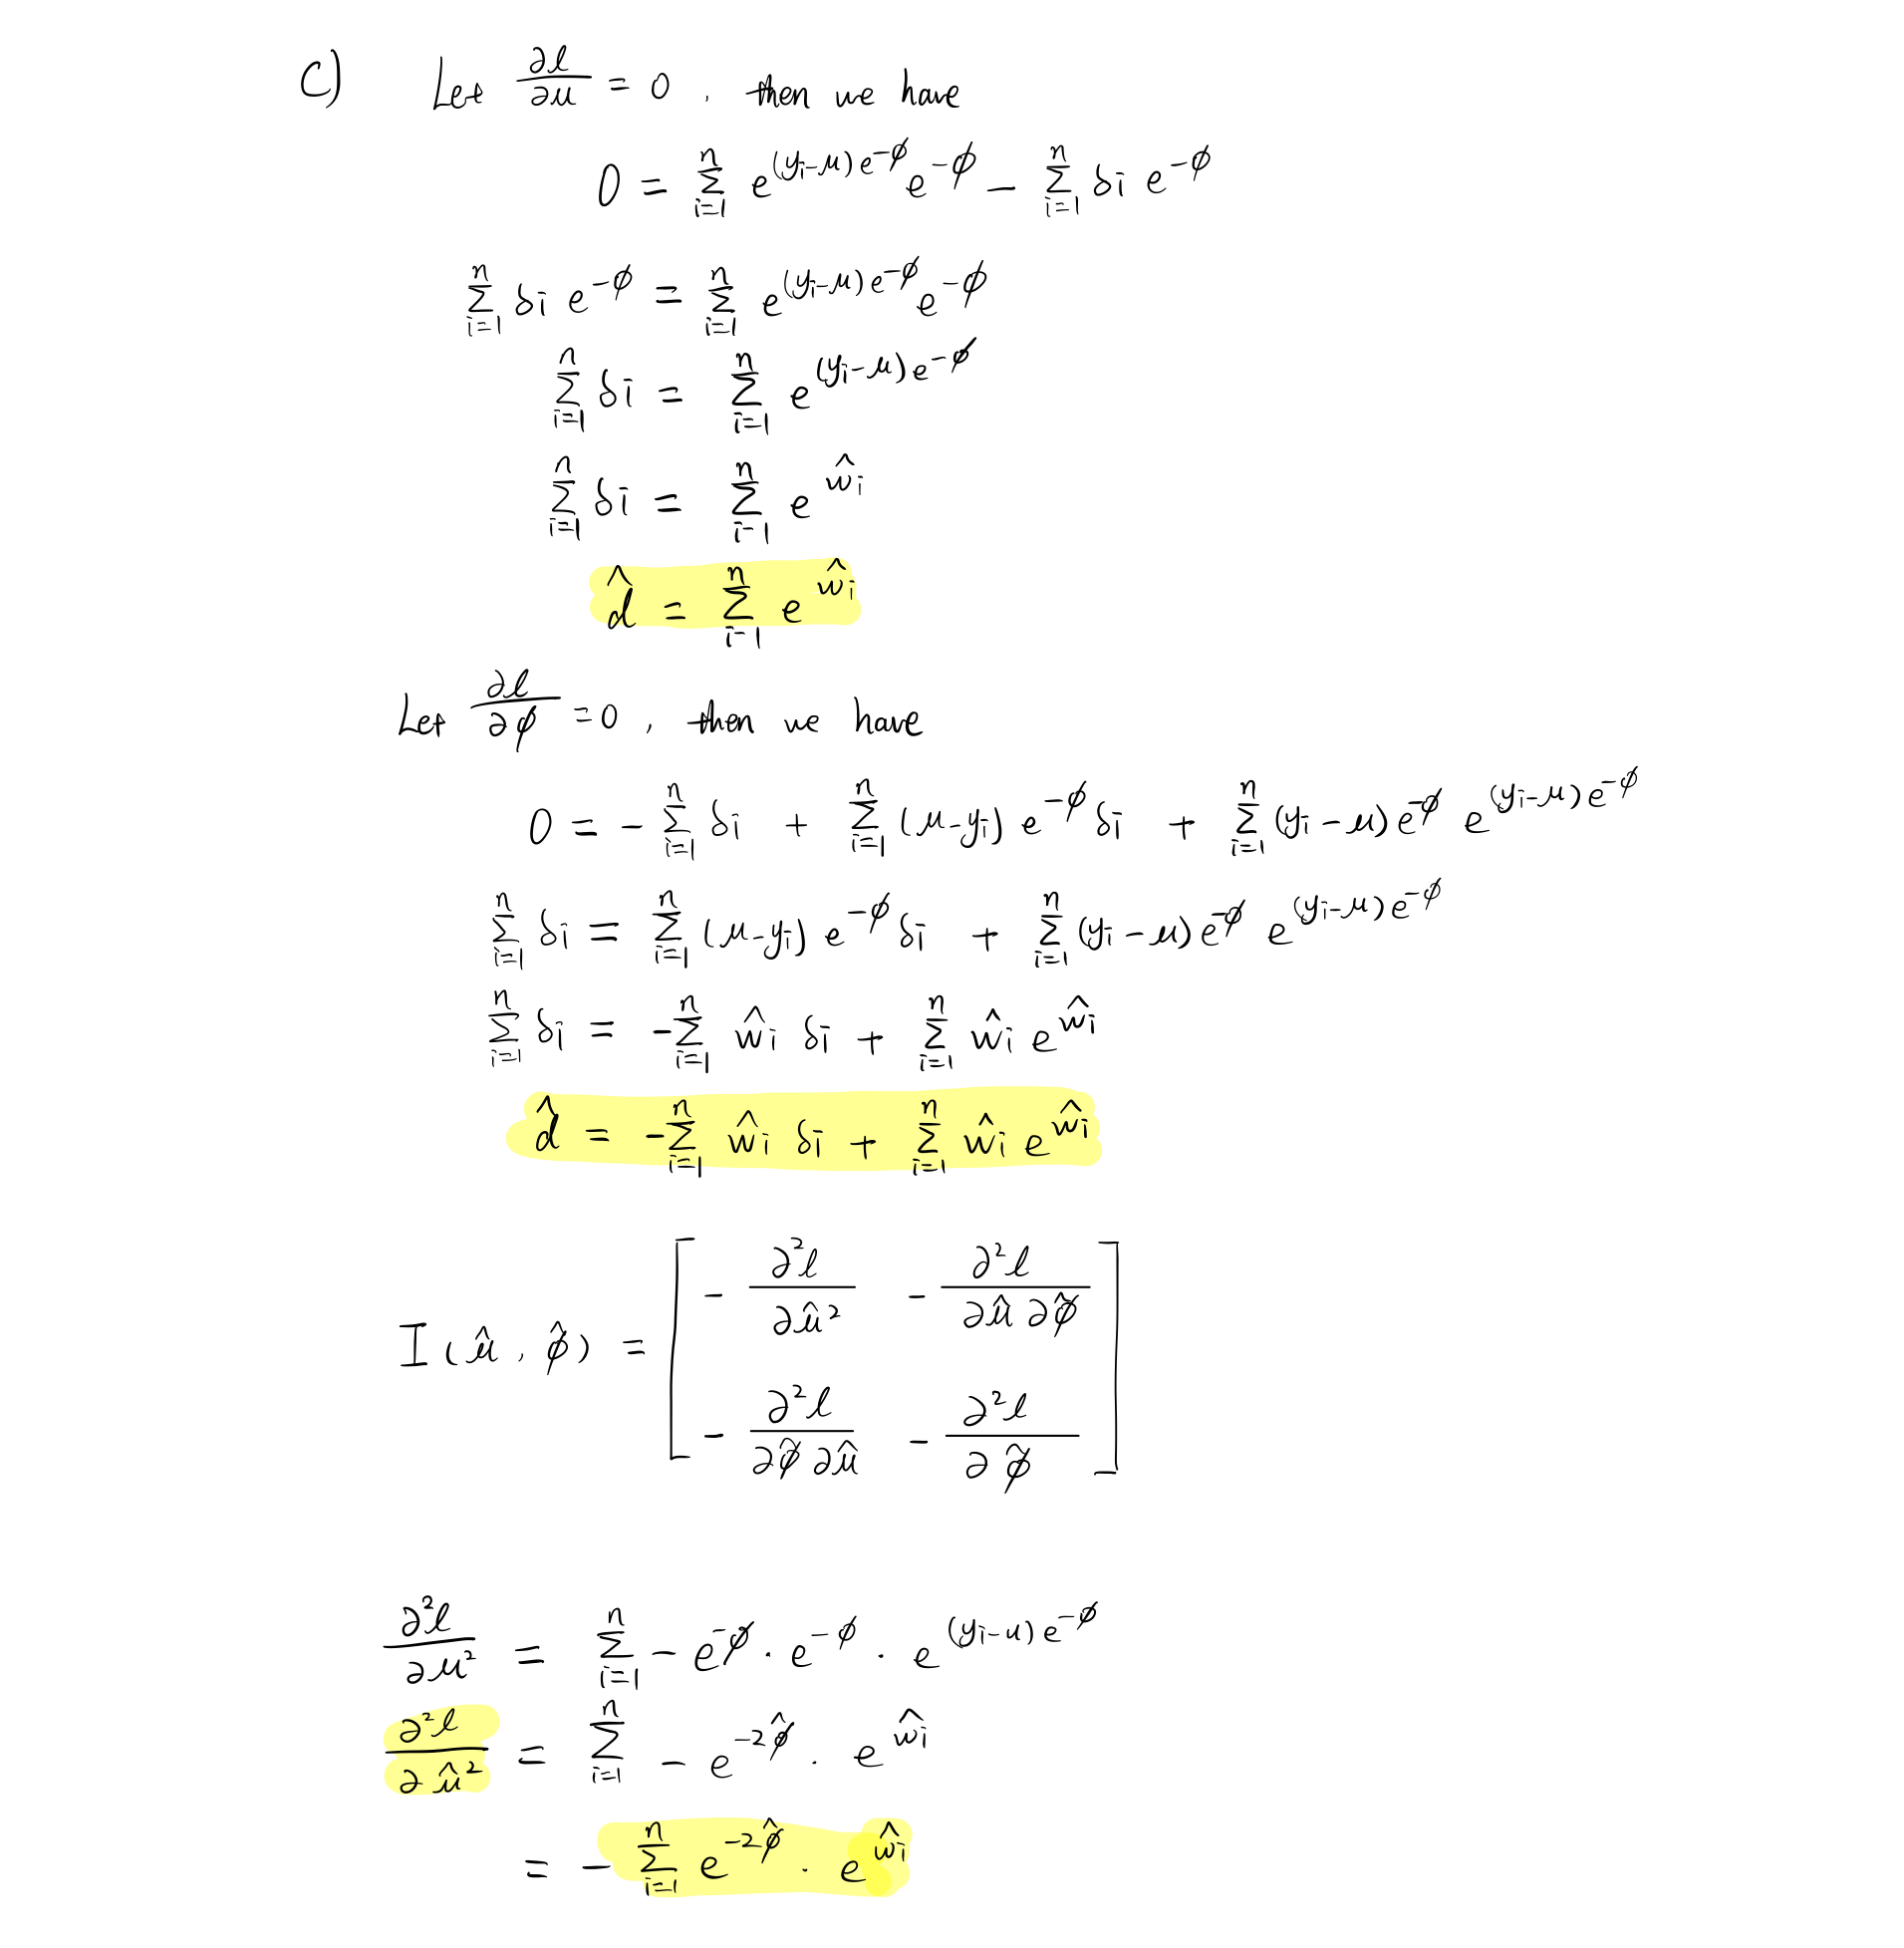 C) Let ∂ℓ/∂μ = 0 , then we have
0 = Σ_{i=1}^{n} e^{(y_i-μ)e^{-φ}} e^{-φ} - Σ_{i=1}^{n} δ_i e^{-φ}
Σ_{i=1}^{n} δ_i e^{-φ} = Σ_{i=1}^{n} e^{(y_i-μ)e^{-φ}} e^{-φ}
Σ_{i=1}^{n} δ_i = Σ_{i=1}^{n} e^{(y_i-μ)e^{-φ}}
Σ_{i=1}^{n} δ_i = Σ_{i=1}^{n} e^{ŵ_i}
d̂ = Σ_{i=1}^{n} e^{ŵ_i}
Let ∂ℓ/∂φ = 0 , then we have
0 = - Σ_{i=1}^{n} δ_i + Σ_{i=1}^{n} (μ-y_i) e^{-φ} δ_i + Σ_{i=1}^{n} (y_i-μ) e^{-φ} e^{(y_i-μ)e^{-φ}}
Σ_{i=1}^{n} δ_i = Σ_{i=1}^{n} (μ-y_i) e^{-φ} δ_i + Σ_{i=1}^{n} (y_i-μ) e^{-φ} e^{(y_i-μ)e^{-φ}}
Σ_{i=1}^{n} δ_i = -Σ_{i=1}^{n} ŵ_i δ_i + Σ_{i=1}^{n} ŵ_i e^{ŵ_i}
d̂ = -Σ_{i=1}^{n} ŵ_i δ_i + Σ_{i=1}^{n} ŵ_i e^{ŵ_i}
I(μ̂, φ̂) = [ -∂²ℓ/∂μ̂² -∂²ℓ/∂μ̂∂φ̂
-∂²ℓ/∂φ̂∂μ̂ -∂²ℓ/∂φ̂ ]
∂²ℓ/∂μ² = Σ_{i=1}^{n} - e^{-φ} · e^{-φ} · e^{(y_i-μ)e^{-φ}}
∂²ℓ/∂μ̂² = Σ_{i=1}^{n} - e^{-2φ̂} · e^{ŵ_i}
= - Σ_{i=1}^{n} e^{-2φ̂} · e^{ŵ_i}